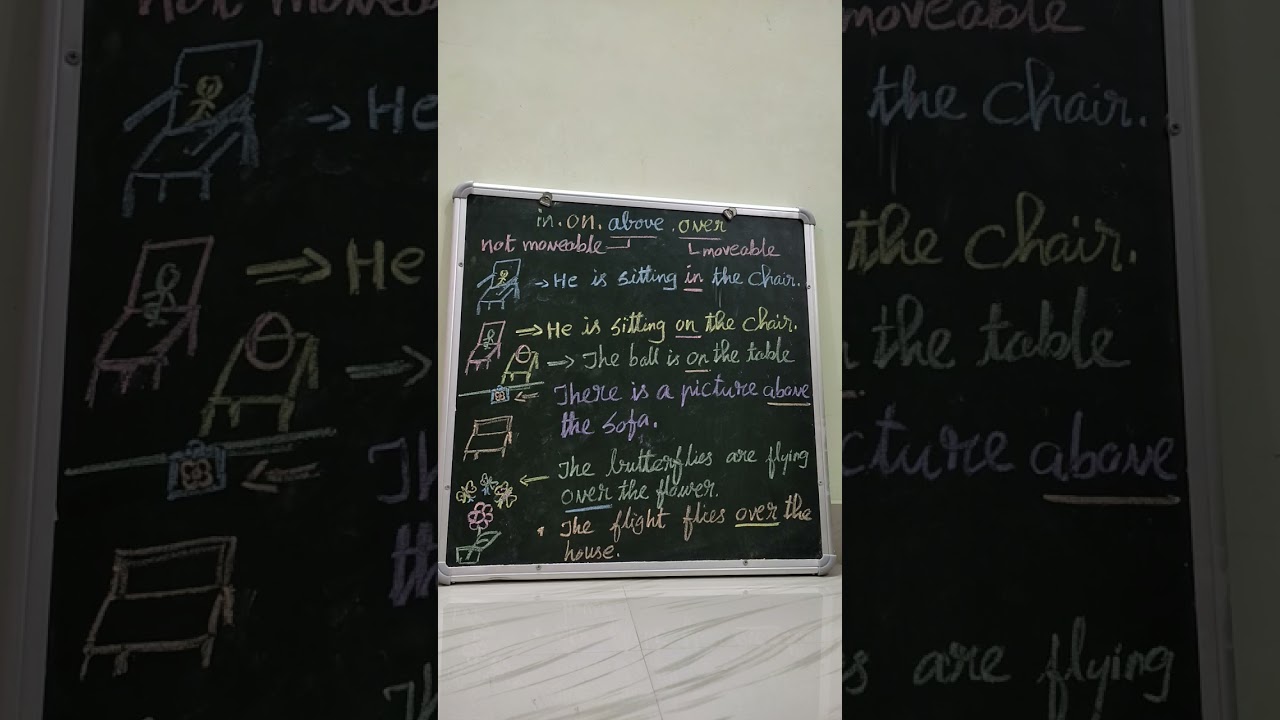 in. on. above. over
not moveable moveable
→ He is sitting in the chair.
⇒ He is sitting on the chair.
⇒ The ball is on the table
There is a picture above
the sofa.
The butterflies are flying
over the flower.
The flight flies over the
house.